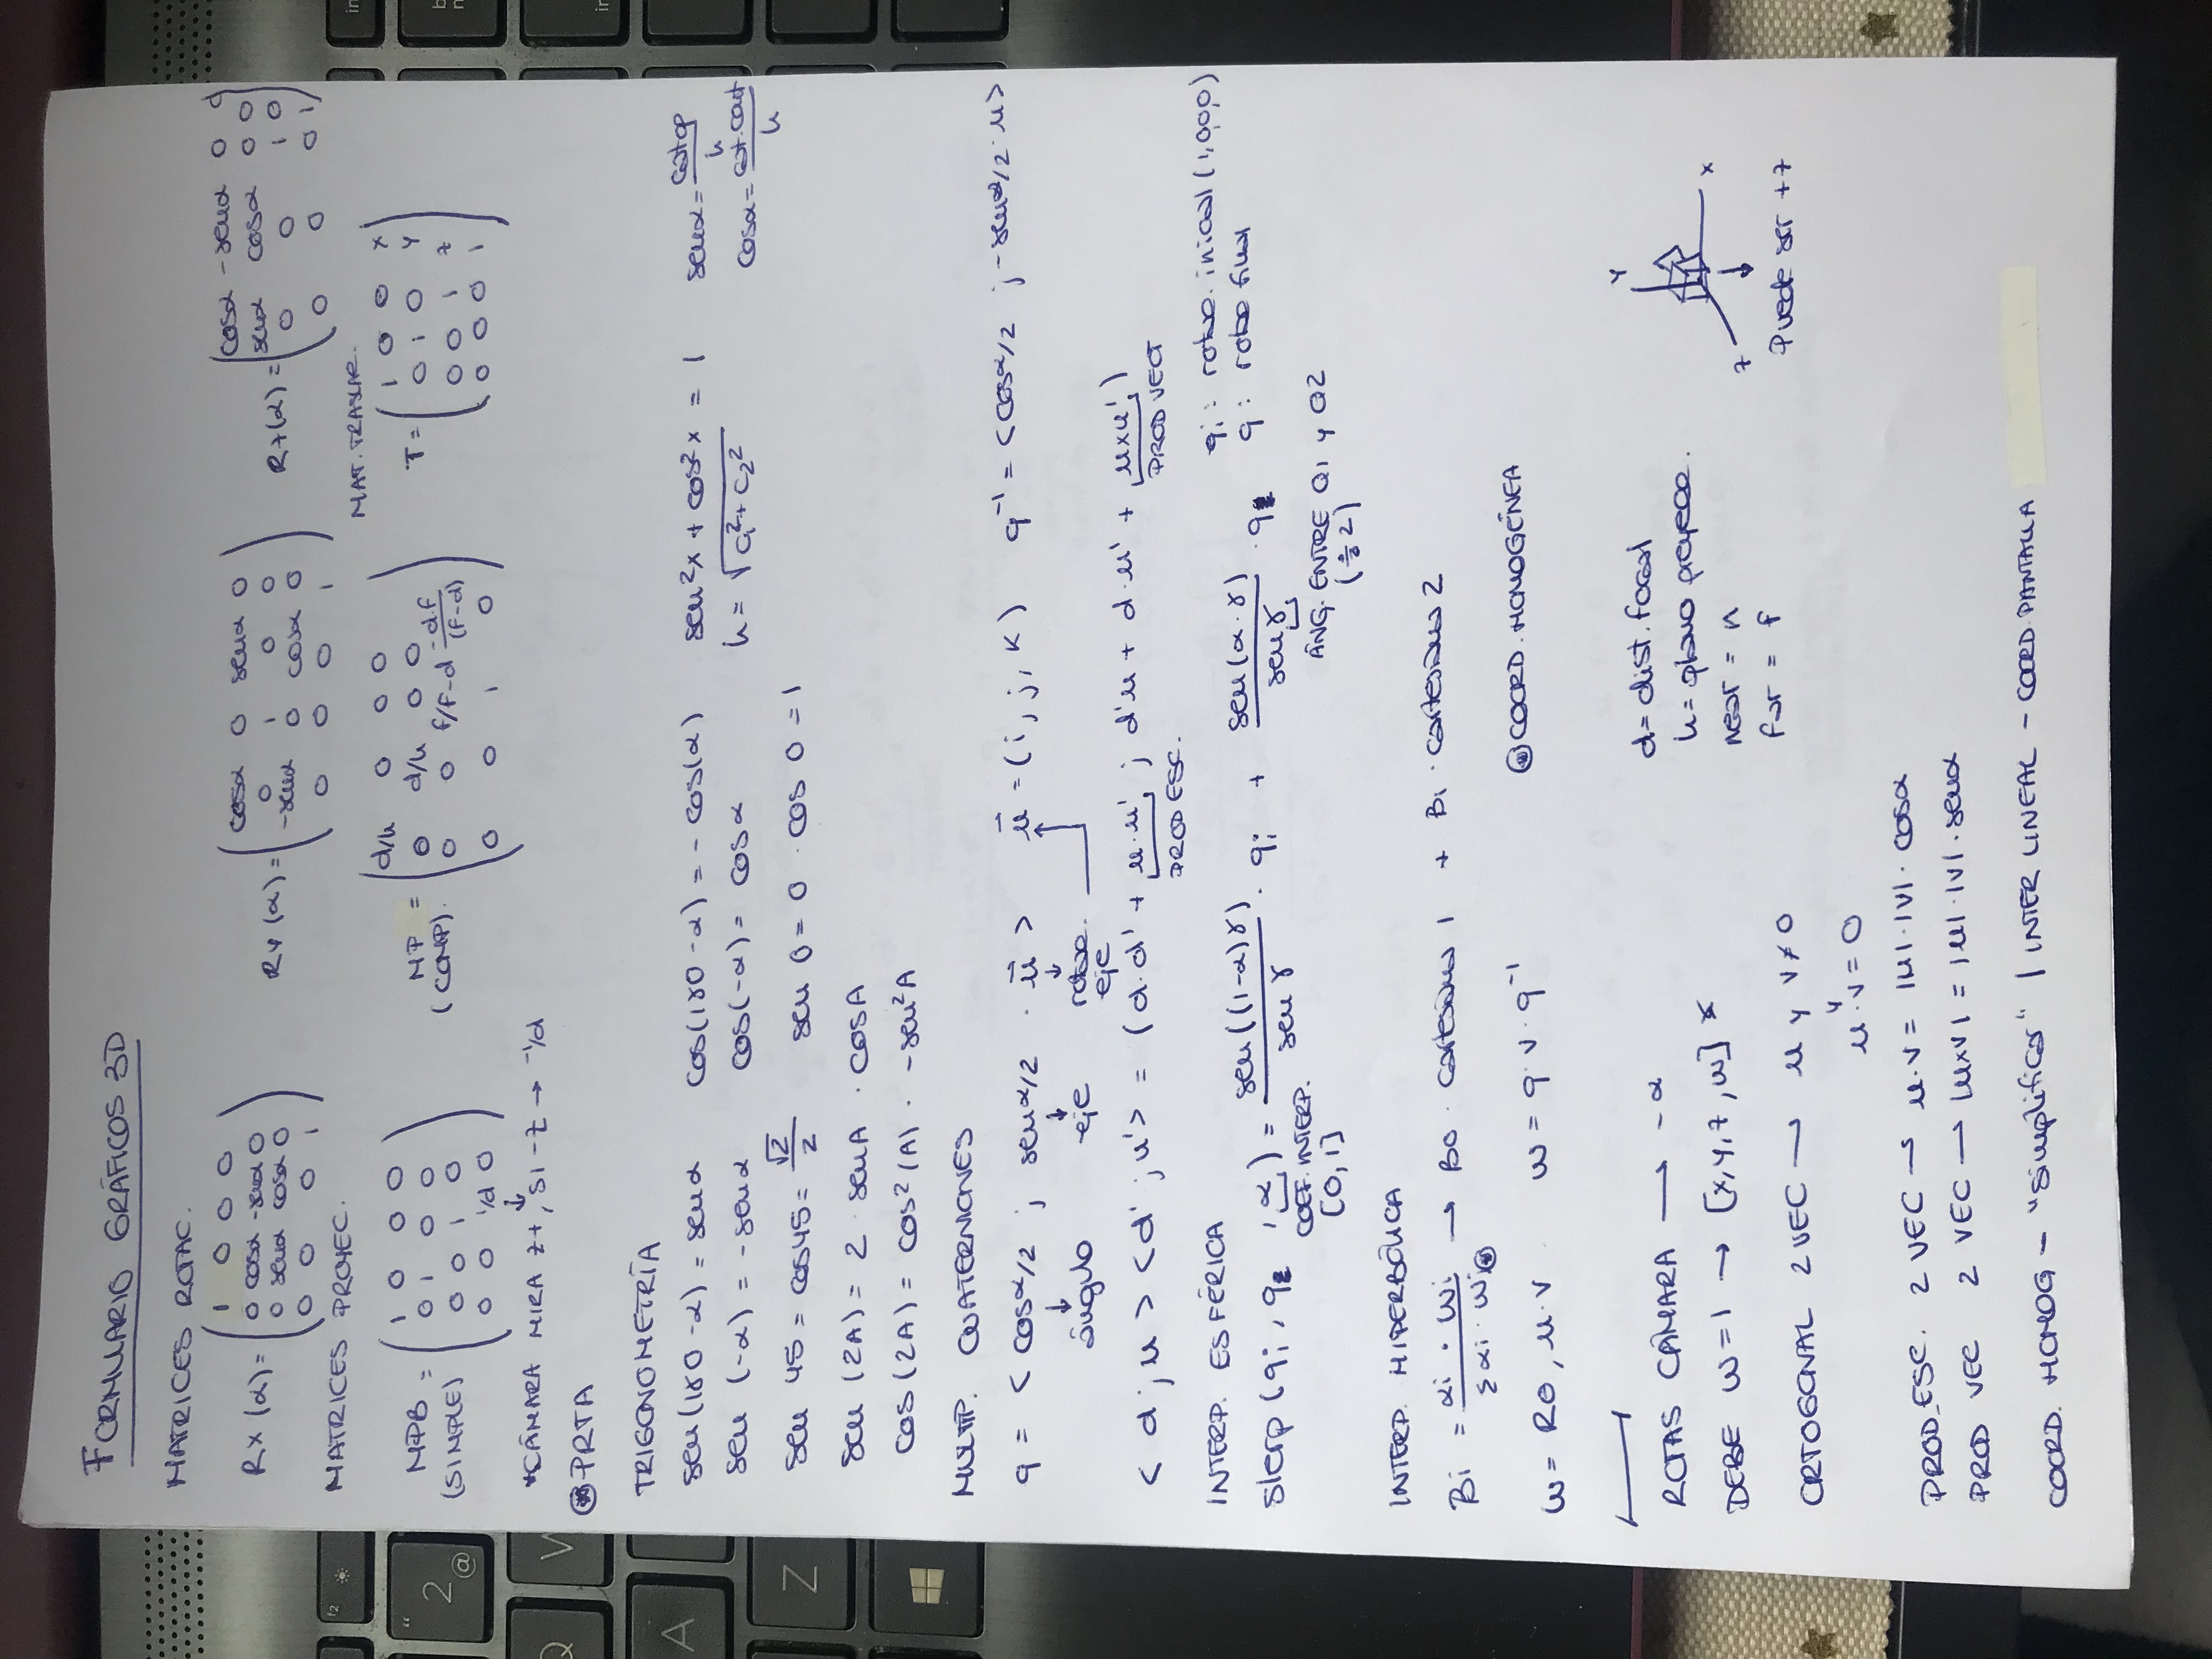 FORMULARIO GRÁFICOS 3D
MATRICES ROTAC.
Rx (α) = ( 1 0 0 0 / 0 cosα -senα 0 / 0 senα cosα 0 / 0 0 0 1 )
Ry (α) = ( cosα 0 senα 0 / 0 1 0 0 / -senα 0 cosα 0 / 0 0 0 1 )
Rz (α) = ( cosα -senα 0 0 / senα cosα 0 0 / 0 0 1 0 / 0 0 0 1 )
MATRICES PROYEC.
MAT. TRASLAC.
MPB (SIMPLE) = ( 1 0 0 0 / 0 1 0 0 / 0 0 1 0 / 0 0 1/d 0 )
MP (COMP). = ( d/h 0 0 0 / 0 d/h 0 0 / 0 0 f/f-d -d.f/(f-d) / 0 0 1 0 )
T = ( 1 0 0 x / 0 1 0 y / 0 0 1 z / 0 0 0 1 )
*CÁMARA MIRA z+, SI -z → -1/d
PRTA
TRIGONOMETRÍA
sen(180-α) = senα cos(180-α) = -cos(α) sen²x + cos²x = 1 senα = cat op / h
sen (-α) = -senα cos(-α) = cosα h = √c₁²+c₂² cosα = cat. cont / h
sen 45 = cos45 = √2/2 sen 0 = 0 · cos 0 = 1
sen (2A) = 2 · senA · cosA
cos (2A) = cos²(A) · -sen²A
MULTIP. CUATERNIONES
q = < cosα/2 ; senα/2 · u⃗ > u⃗ = (i, j, k) q⁻¹ = <cosα/2 ; -senα/2 · u>
↓ ángulo ↓ eje ↓ rotac. eje
< d ; u > <d' ; u'> = (d·d' + u·u' ; d'u + d·u' + u×u')
PROD ESC. PROD VECT
INTERP. ESFÉRICA
qi : rotac. inicial (1,0,0,0)
slerp (qi , q , α) = sen((1-α)γ) / sen γ · qi + sen(α·γ) / sen γ · q
q : rotac final
COEF. INTERP. [0,1]
ÁNG. ENTRE Q1 y Q2
INTERP. HIPERBÓLICA
Bi = αi · wi / Σαi · wi → B0 · cartesiano 1 + B1 · cartesiano 2
COORD. HOMOGÉNEA
w = Rθ, u·v w = q·v·q⁻¹
ROTAS CÁMARA → -α
d= dist. focal
Y
h= plano proyecc.
DEBE w=1 → [x,y,z,w]
x
near = n
z
far = f
Puede ser +z
ORTOGONAL 2 VEC → u y v≠0
y
u·v=0
PROD_ESC. 2 VEC → u·v = |u|·|v|· cosα
PROD VEC 2 VEC → |u×v| = |u|·|v|·senα
COORD. HOMOG - "simplificar" / INTER LINEAL - COORD. PANTALLA
2
@
Q
W
A
Z